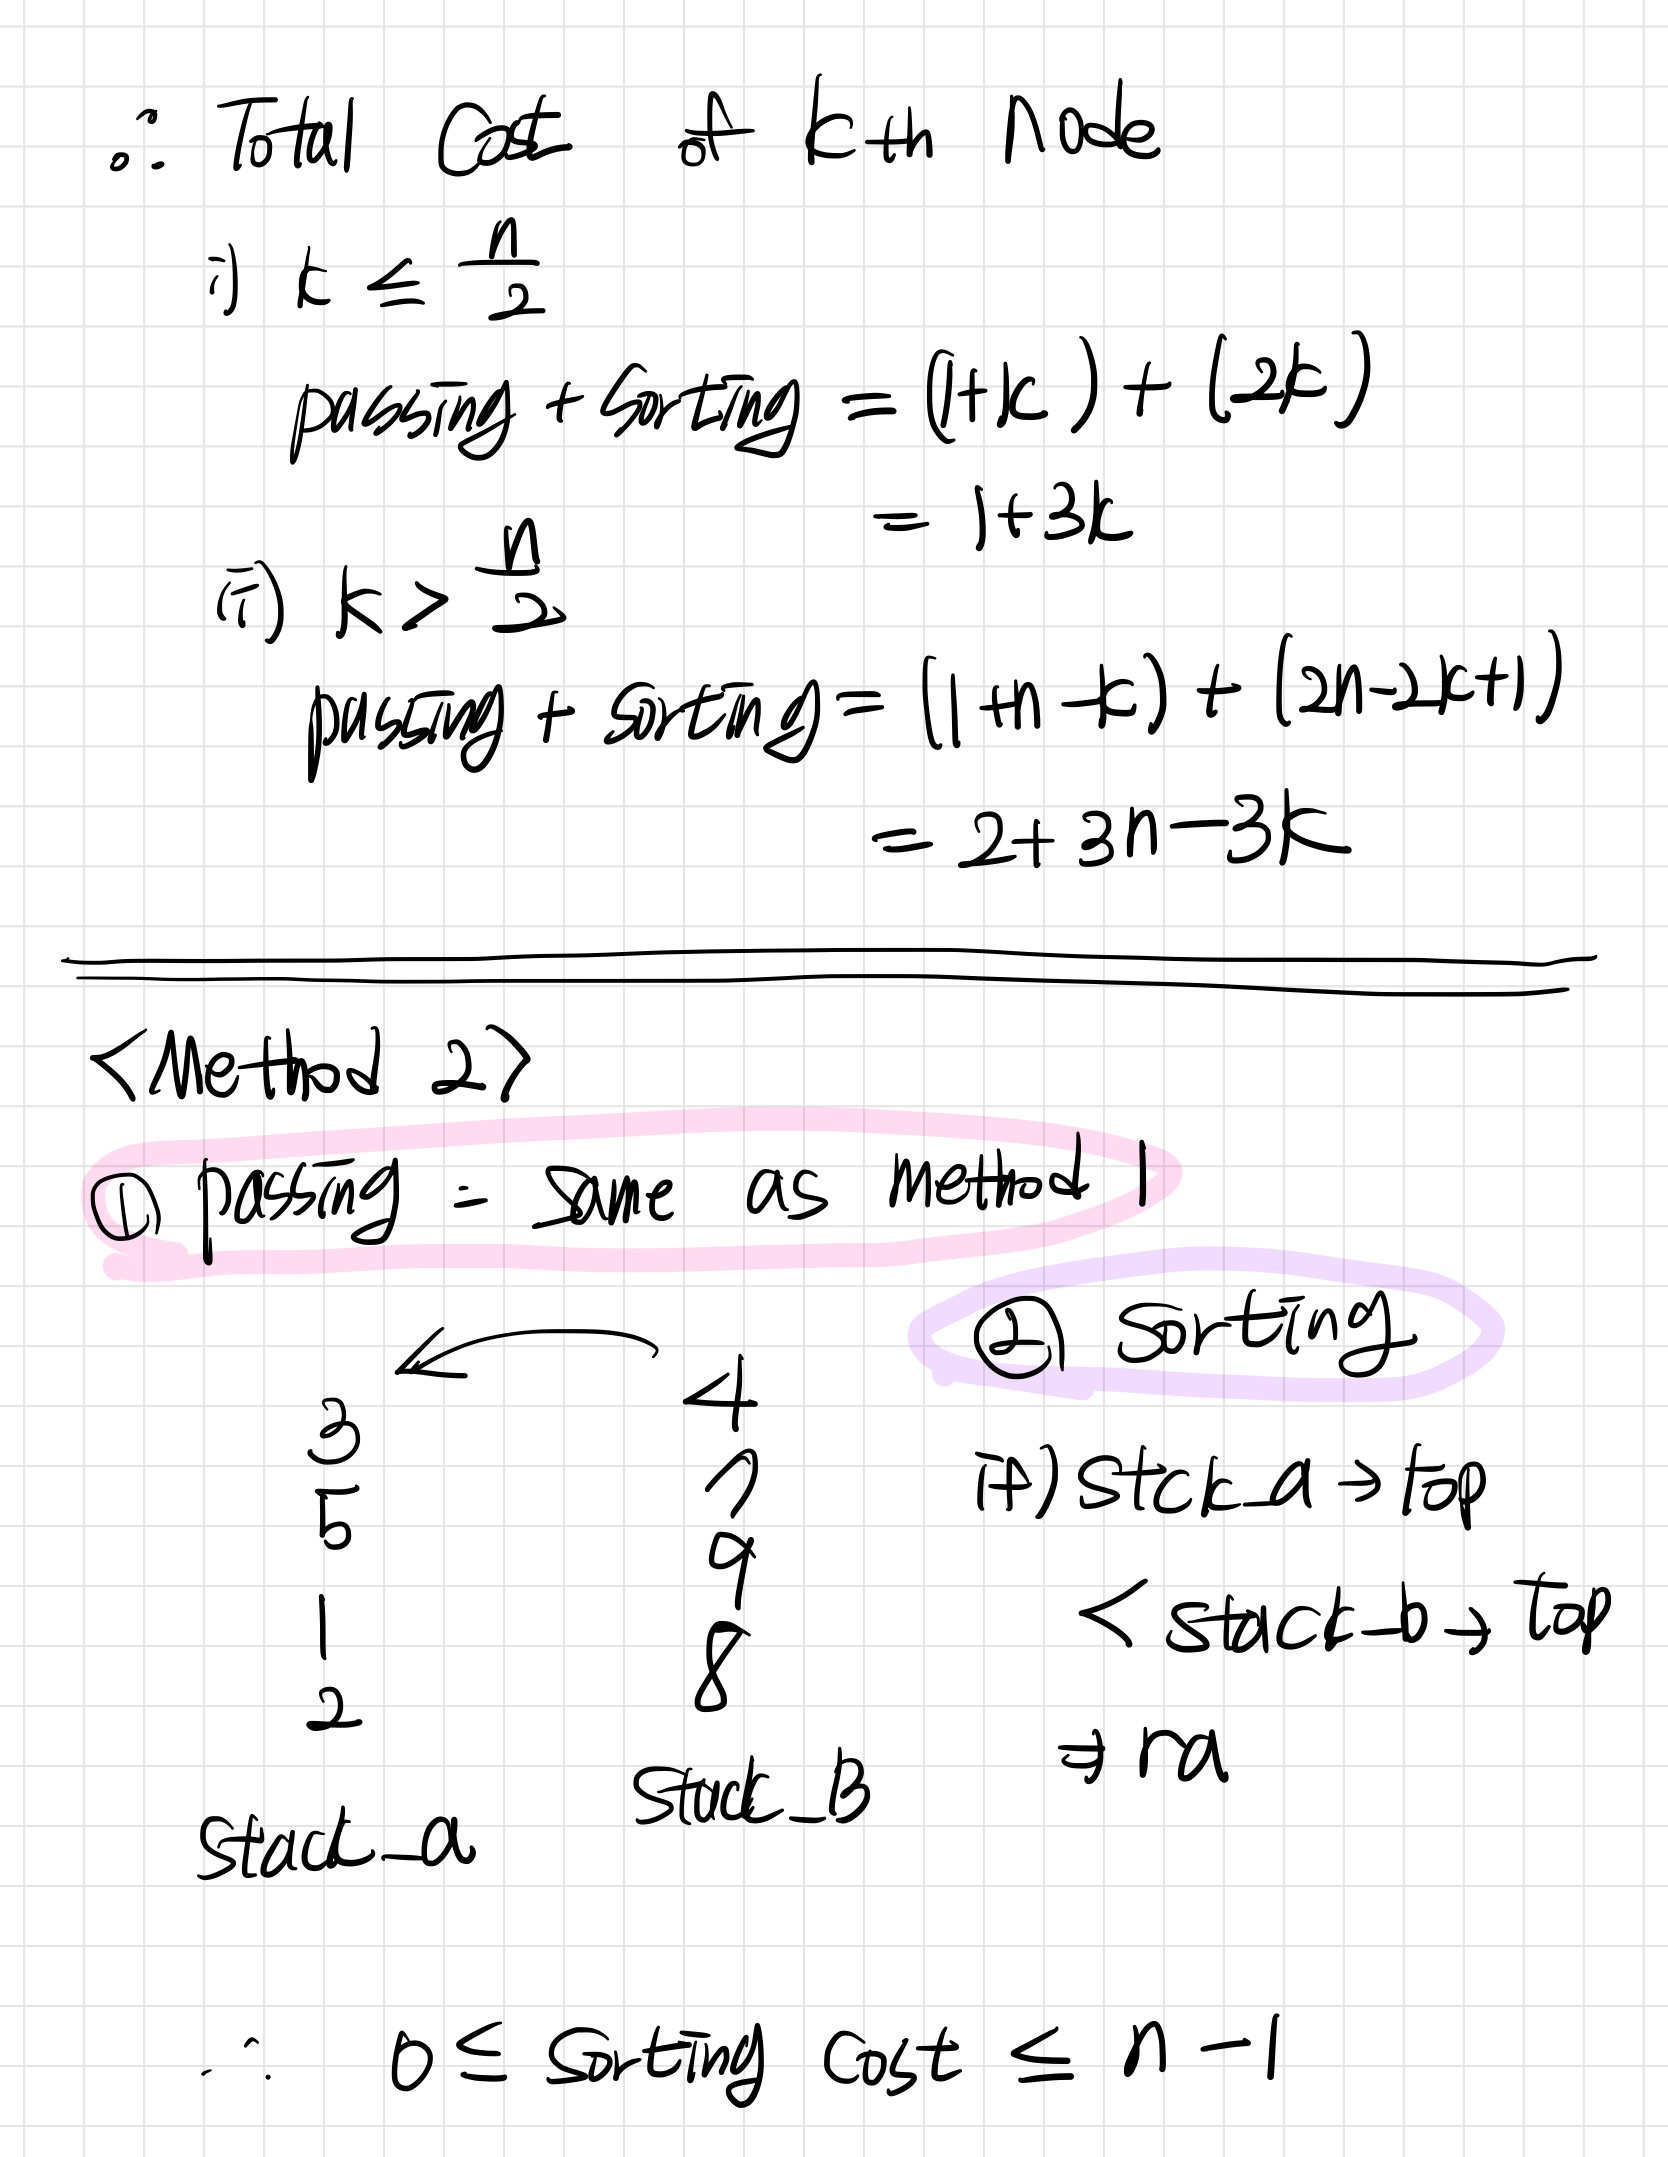 ∴ Total Cost of kth Node
i) k ≤ n/2
passing + sorting = (1+k) + (2k)
= 1+3k
ii) k > n/2
passing + sorting = (1+n-k) + (2n-2k+1)
= 2+3n-3k
<Method 2>
① passing = same as method 1
② sorting
3 4
5 7
1 9
2 8
stack_a
stack_B
if) stck_a → top
< stack_b → top
⇒ ra
∴ 0 ≤ sorting cost ≤ n-1